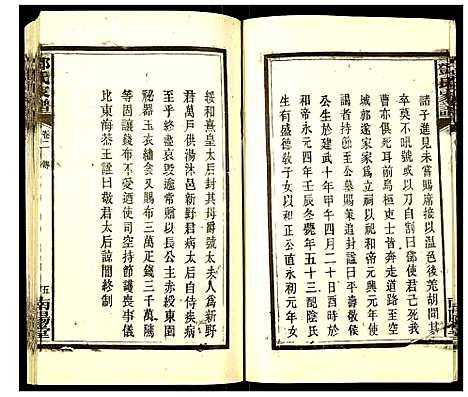 諸子進見未嘗賜席接以溫色後羌胡聞其
卒莫不吼號或以刀自割曰鄧使君已死我
曹亦俱死耳前烏桓吏士皆奔走道路至空
城郭遂家家爲立祠以祀和帝元興元年
謁者持節至公墓賜策追封諡曰平壽敬侯
公生於建武十年甲午四月二十日酉時於
和帝永元四年壬辰冬薨年五十三配陰氏
生有盛德敬子女以和正公直永初元年女
綏和熹皇太后封其母爵號太夫人爲新野
君萬戶供湯沐邑新野君病太后自侍疾病
至乎終盡哀毀逾常贈以長公主赤綬東園
秘器玉衣繡衾又賜布三萬疋錢三千萬隲
等固讓錢布不受使司空持節護喪事儀
比東海恭王諡曰敬君太后諒闇終制
鄧氏家譜
卷二
傳
五
南陽堂